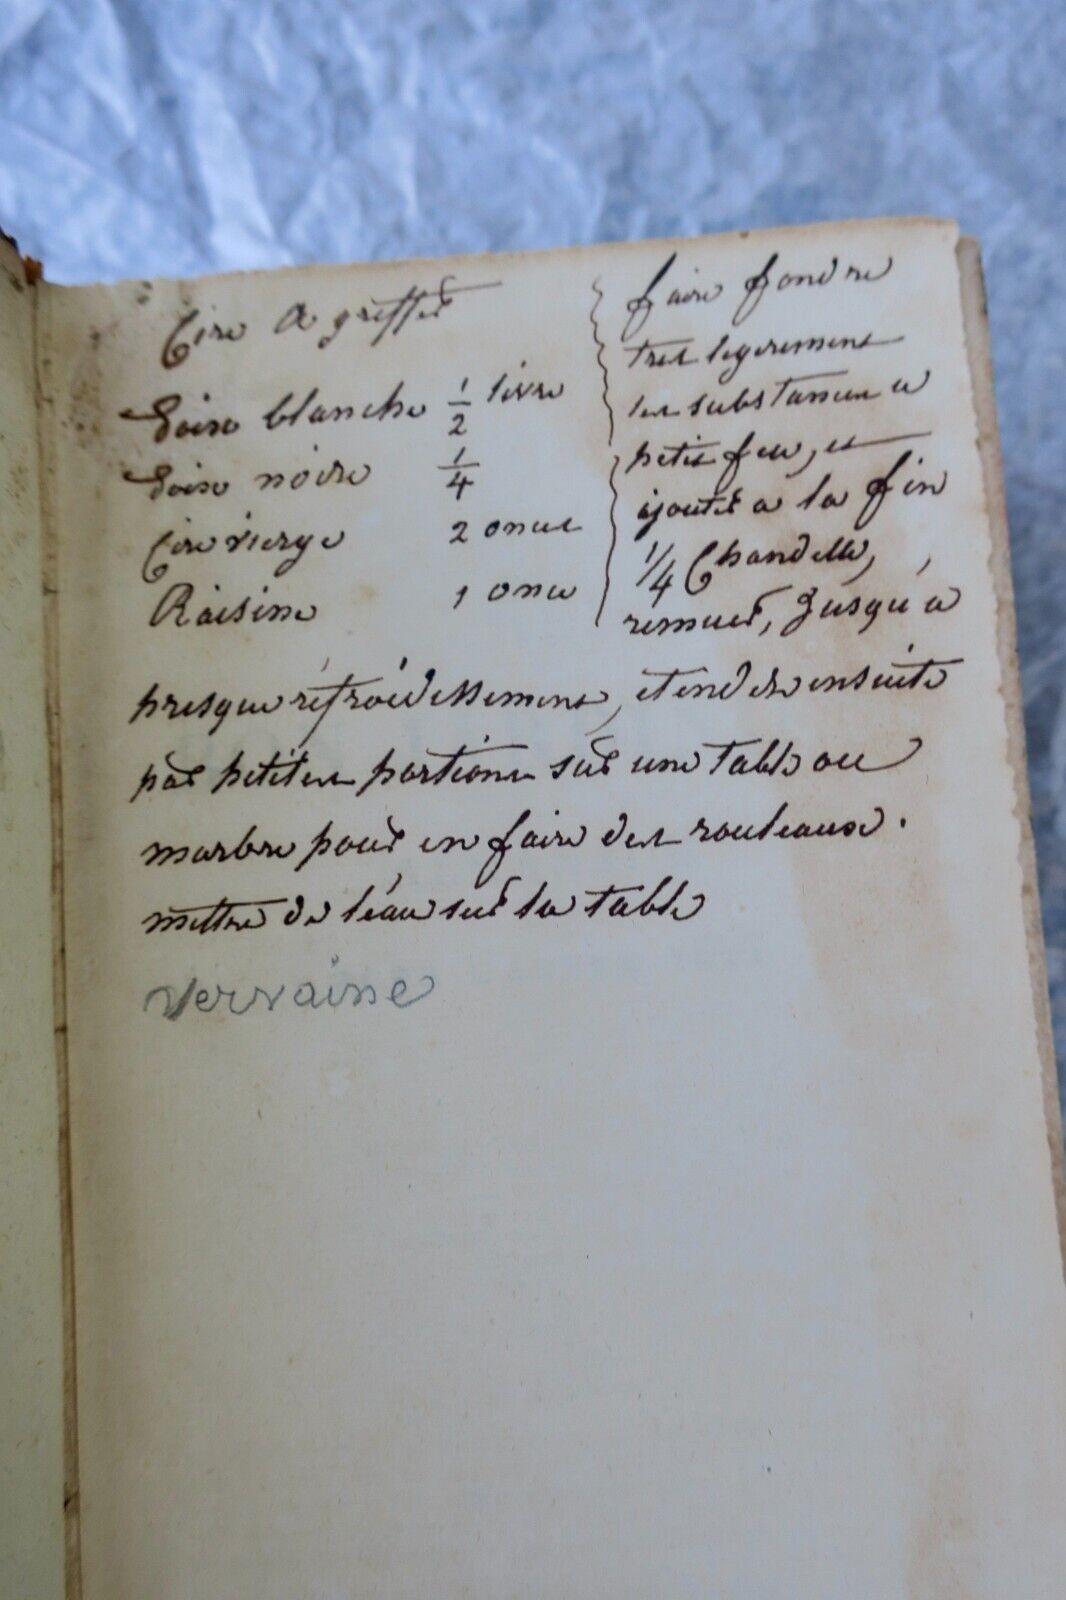 Cire a greffer
Poix blanche 1/2 livre
Poix noire 1/4
Cire vierge 2 onces
Raisine 1 once
faire fondre
tres legerement
les substances a
petit feu, et
ajouter a la fin
1/4 Chandelle,
remuer, jusqu'a
presque réfroidessement, etendre ensuite
par petites portions sur une table ou
marbre pour en faire des rouleaux.
mettre de l'éau sur la table
Vervaine